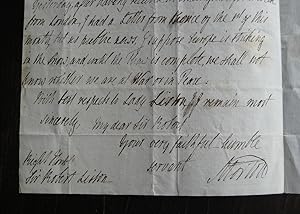 from London, I had a Letter from thence of the
month, but no public news. I suppose Europe is
in the and until the is complete, we shall not
know whether we are at War or in Peace.
With best respects to Lady Liston, I remain most
Sincerely my dear Sir Robert
Your very faithful humble
servant
Right Honble
Sir Robert Liston